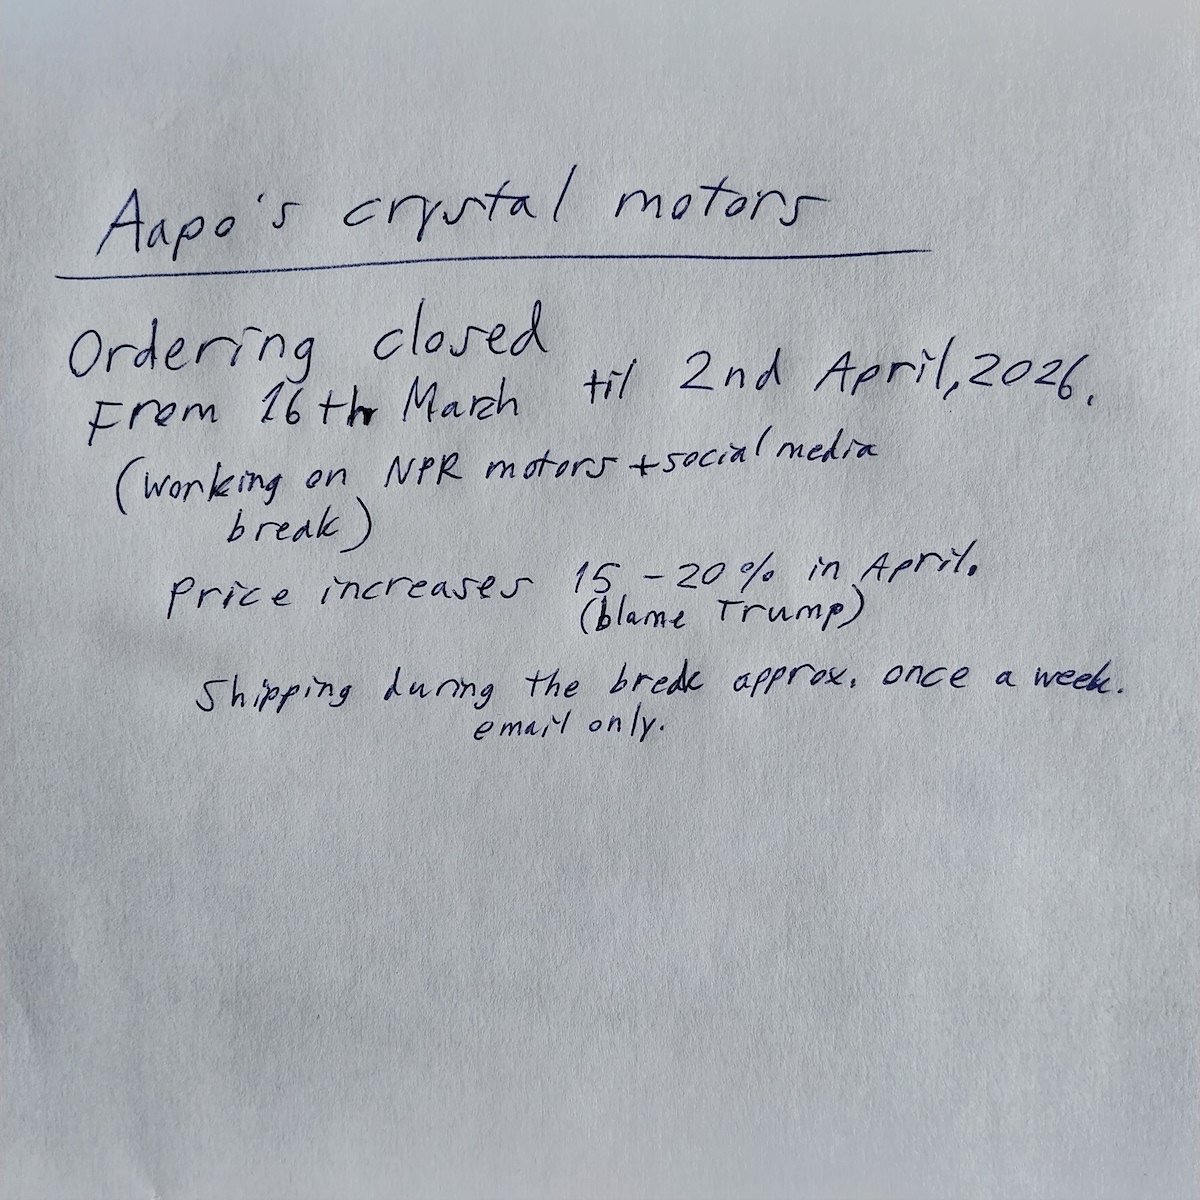 Aapo's crystal motors
Ordering closed
From 16th March til 2nd April, 2026.
(Working on NPR motors + social media
break)
Price increases 15-20% in April.
(blame Trump)
Shipping during the break approx. once a week.
email only.